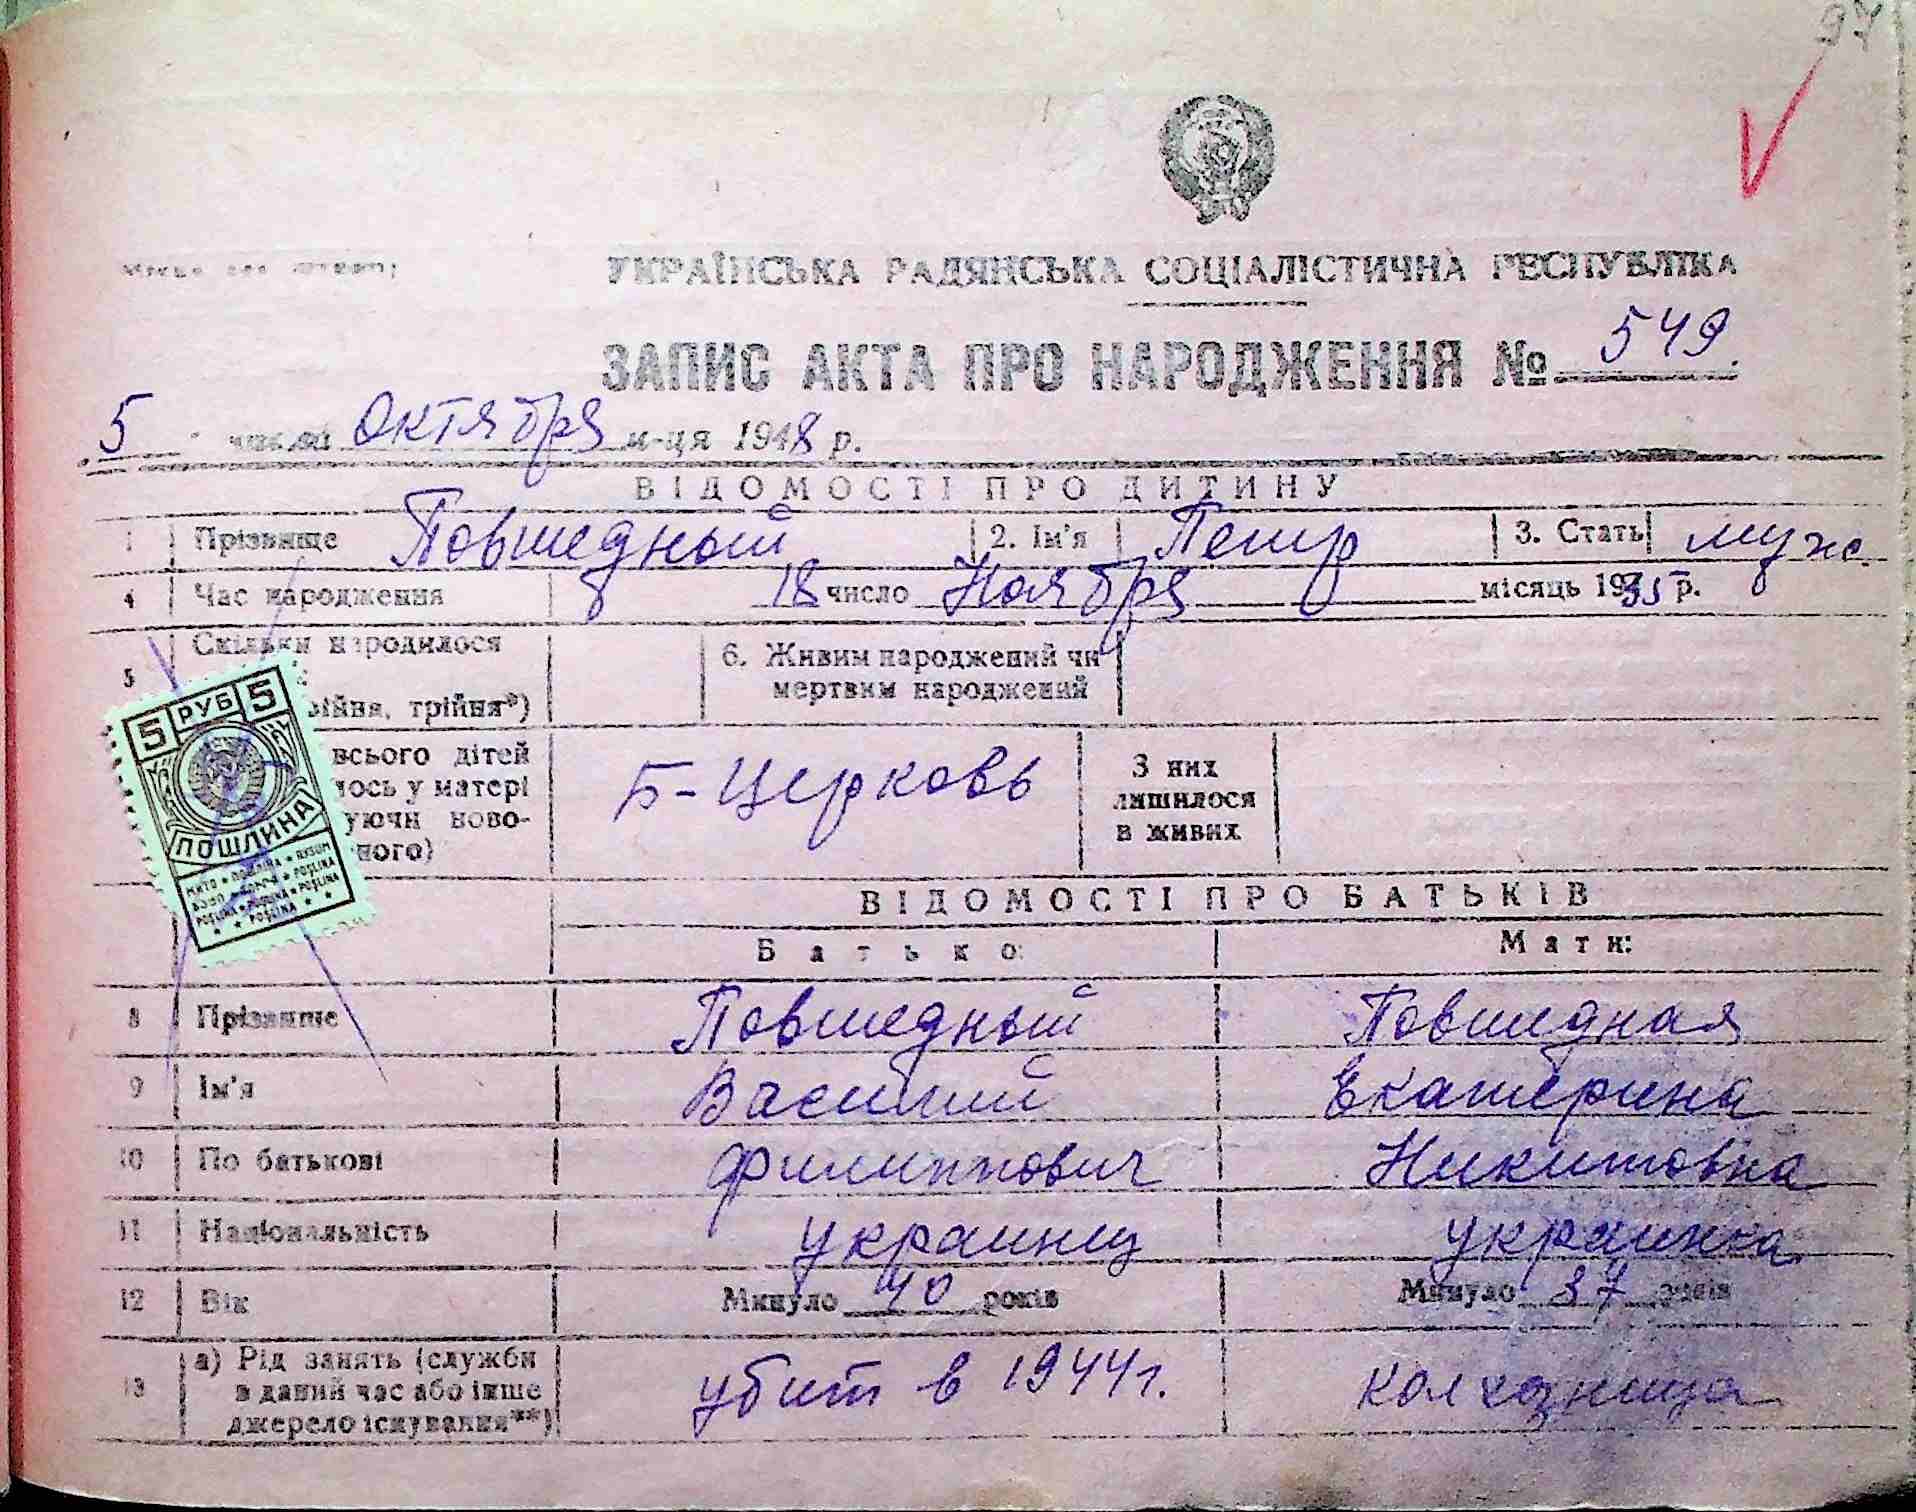 97
УКРАЇНСЬКА РАДЯНСЬКА СОЦІАЛІСТИЧНА РЕСПУБЛІКА
ЗАПИС АКТА ПРО НАРОДЖЕННЯ № 549.
5 числа октября м-ця 1948 р.
ВІДОМОСТІ ПРО ДИТИНУ
1 Прізвище Повшедный 2. Ім'я Петр 3. Стать муж.
4 Час народження 18 число Ноября місяць 1935 р.
5 Скільки народилося
6. Живим народжений чи
мертвим народжений
війня, трійня*)
5 РУБ 5
ПОШЛИНА
всього дітей
лось у матері
уючи ново-
ного)
Б-Церковь
З них
лишилося
в живих
ВІДОМОСТІ ПРО БАТЬКІВ
Батько: Мати:
8 Прізвище Повшедный Повшедная
9 Ім'я Василий Екатерина
10 По батькові Филиппович Никитовна
11 Національність украинец украинка
12 Вік Минуло 40 років Минуло 37 років
13 а) Рід занять (служби
в даний час або інше
джерело існування**)
убит в 1944 г. колхозница